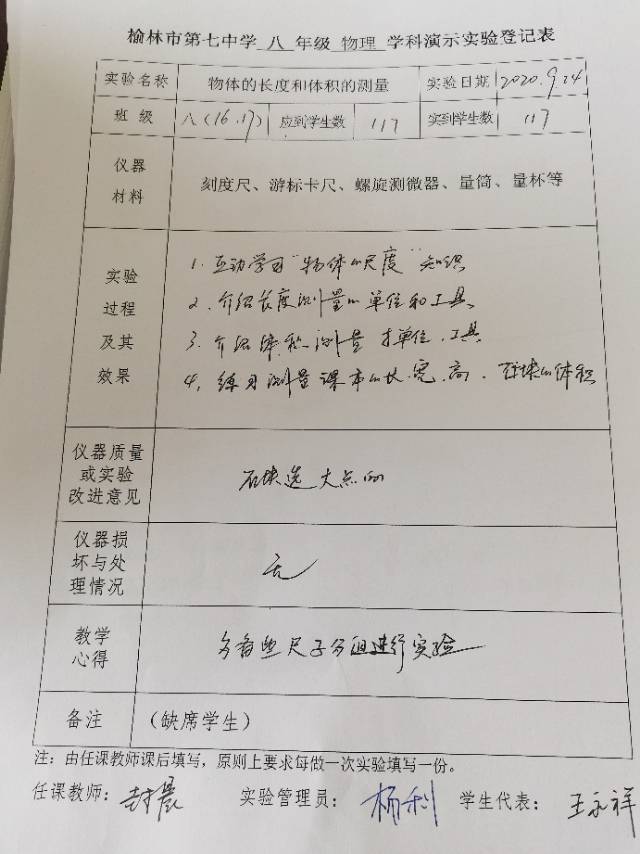 榆林市第七中学 八 年级 物理 学科演示实验登记表
实验名称 物体的长度和体积的测量 实验日期 2020.9.24
班 级 八(16.17) 应到学生数 117 实到学生数 117
仪器
材料
刻度尺、游标卡尺、螺旋测微器、量筒、量杯等
实验
过程
及其
效果
1. 互动学习"物体的尺度"知识
2. 介绍长度测量的单位和工具
3. 介绍体积测量 单位、工具
4. 练习测量课本的长.宽.高. 石块的体积
仪器质量
或实验
改进意见
石块选大点的
仪器损
坏与处
理情况
无
教学
心得
多备些尺子分组进行实验
备注 (缺席学生)
注：由任课教师课后填写，原则上要求每做一次实验填写一份。
任课教师：封晨 实验管理员：杨利 学生代表：王永祥